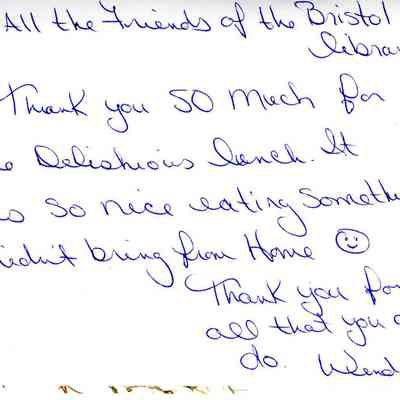 All the Friends of the Bristol
Thank you SO Much for
Delishious lunch. It
so nice eating
bring from Home ☺
Thank you
all that you
do.